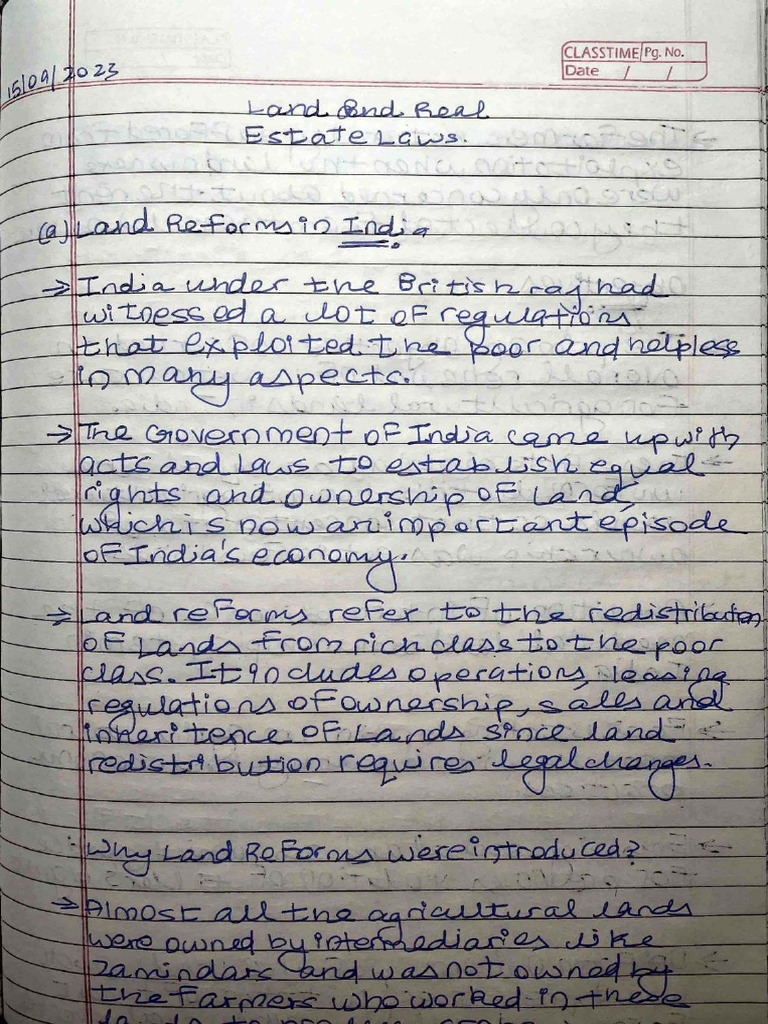 CLASSTIME Pg. No.
Date / /
15/09/2023
Land and Real
Estate Laws.
(a) Land Reforms in India
→ India under the British raj had
witnessed a lot of regulations
that exploited the poor and helpless
in many aspects.
→ The Government of India came up with
acts and Laws to establish equal
rights and ownership of land,
which is now an important episode
of India's economy.
→ Land reforms refer to the redistribution
of Lands from rich class to the poor
class. It includes operations, leasing
regulations of ownership, sales and
inheritence of Lands since land
redistribution requires legal changes.
Why Land Reforms were introduced?
→ Almost all the agricultural lands
were owned by intermediaries like
Zamindars and was not owned by
the farmers who worked in these